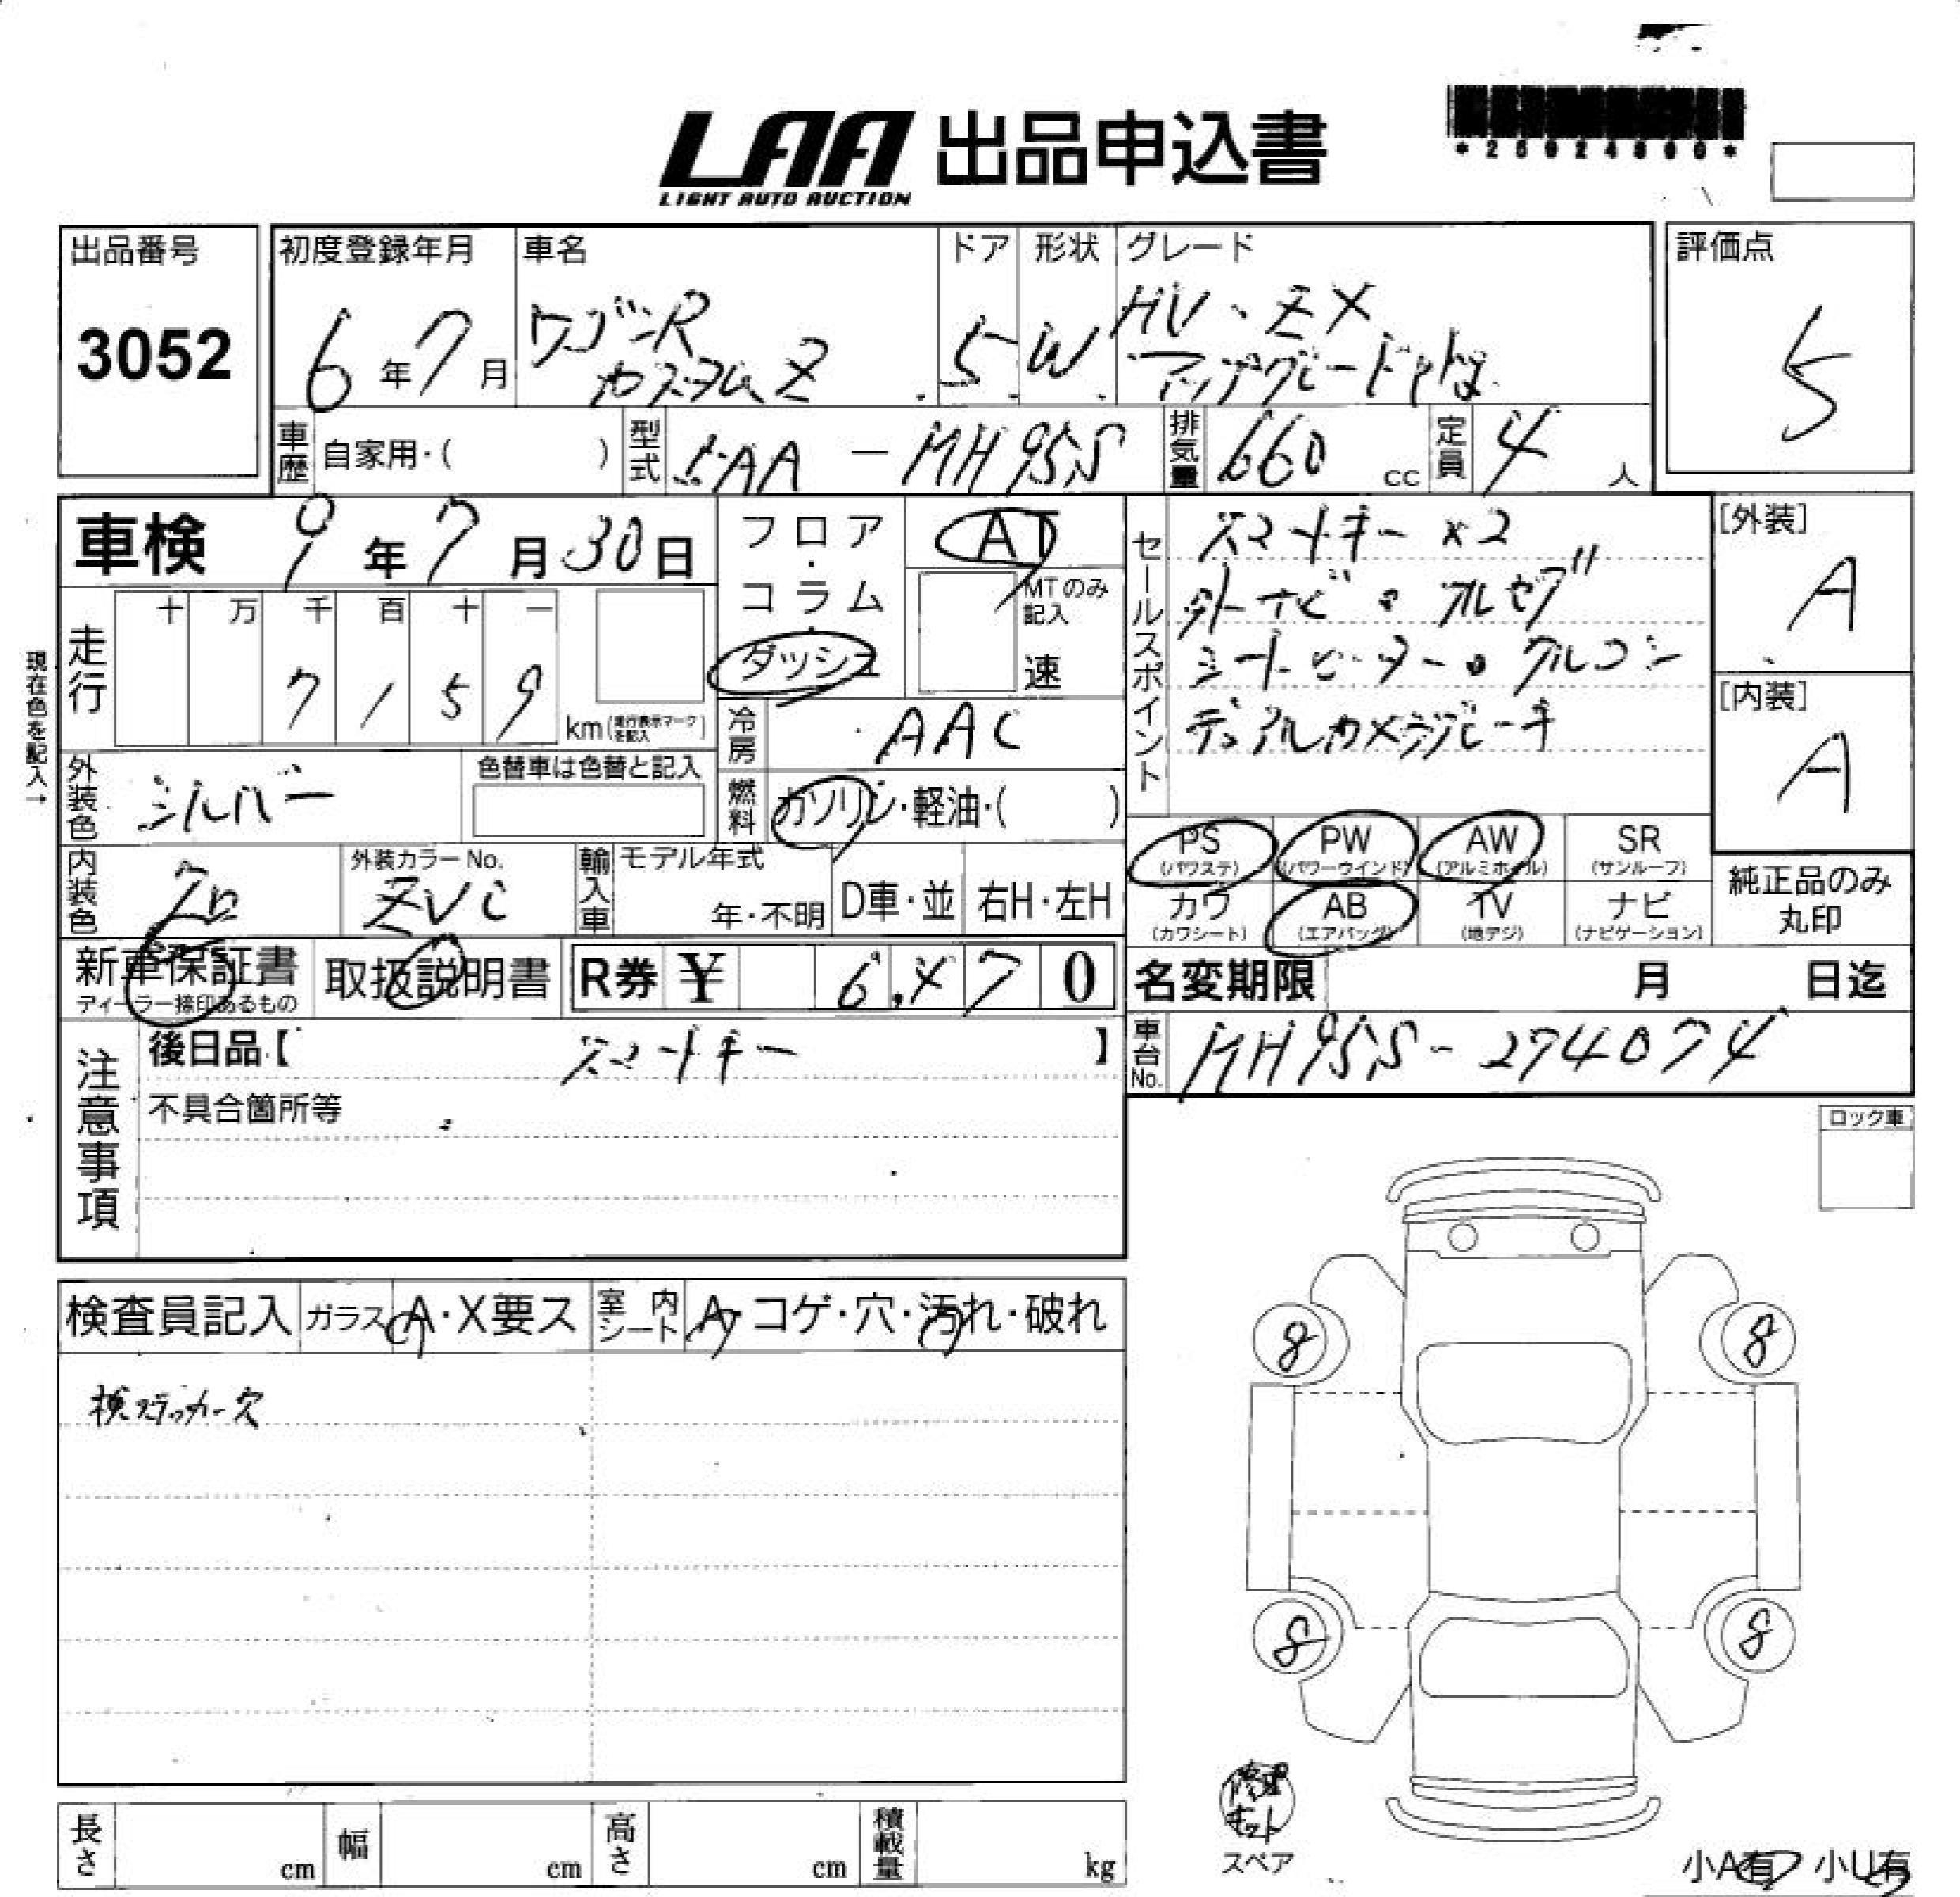 LAA 出品申込書
LIGHT AUTO AUCTION
出品番号
3052
初度登録年月
6年7月
車名
ワゴンR
カスタムZ
ドア
5
形状
W
グレード
HV・ZX
アップグレードpkg
評価点
5
車歴 自家用・( )
型式 5AA-MH95S
排気量 660 cc
定員 4 人
車検 9年7月30日
フロア・コラム・ダッシュ
AT
MTのみ記入
速
現在色を記入→
走行 十 万 千 百 十 一
7 1 5 9
km(走行表示マークを記入)
冷房 AAC
外装色 シルバー
色替車は色替と記入
燃料 ガソリン・軽油・( )
内装色
外装カラーNo.
ZVC
輸入車 モデル年式
年・不明
D車・並
右H・左H
新車保証書
ディーラー捺印あるもの
取扱説明書
R券 ¥ 6,×70
セールスポイント
スマートキー×2
シートヒーター・クルコン
デュアルカメラブレーキ
[外装]
A
[内装]
A
PS (パワステ)
PW (パワーウインド)
AW (アルミホイール)
SR (サンルーフ)
カワ (カワシート)
AB (エアバッグ)
TV (地デジ)
ナビ (ナビゲーション)
純正品のみ丸印
名変期限 月 日迄
車台No. MH95S-274074
注意事項
後日品【 スマートキー 】
不具合箇所等
ロック車
検査員記入 ガラス A・X要ス
室内シート A・コゲ・穴・汚れ・破れ
検ステッカー穴
8
8
8
8
修理キット
スペア
長さ cm
幅 cm
高さ cm
積載量 kg
小A有 小U有